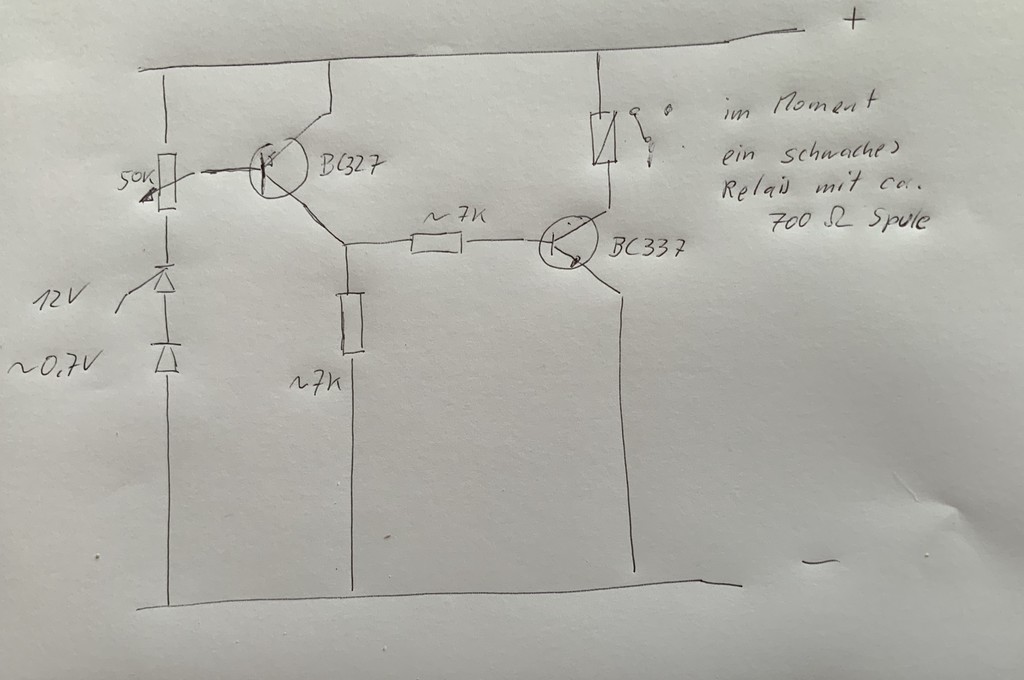 +
im Moment
ein schwaches
Relais mit ca.
700 Ω Spule
50K
BC327
~7K
BC337
12V
~0,7V
~7K
−